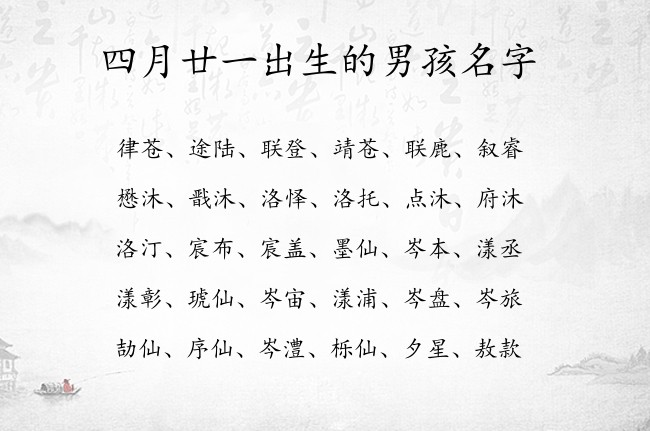 四月廿一出生的男孩名字
律苍、途陆、联登、靖苍、联鹿、叙睿
懋沐、戬沐、洛怿、洛托、点沐、府沐
洛汀、宸布、宸盖、墨仙、岑本、漾丞
漾彰、琥仙、岑宙、漾浦、岑盘、岑旅
劼仙、序仙、岑澧、栎仙、夕星、敖款